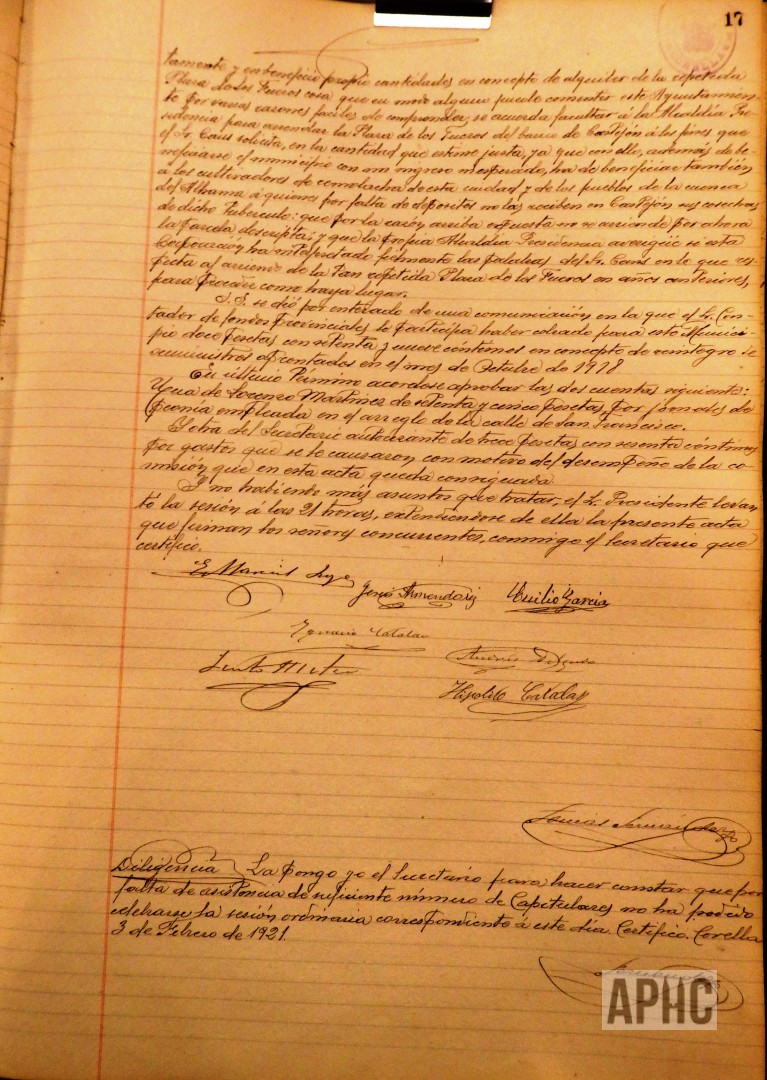 17
tamente y en beneficio propio cantidades en concepto de alquiler de la repetida
Plaza de los Fueros cosa que en modo alguno puede consentir este Ayuntamien-
to por varias razones faciles de comprender, se acuerda facultar á la Alcaldía Pre-
sidencia para arrendar la Plaza de los Fueros del barrio de Castejón á los fines que
el Sr. Caus solicita, en la cantidad que estime justa, ya que con ello, además de be-
neficiarse el municipio con un ingreso inesperado, ha de beneficiar también
á los cultivadores de remolacha de esta ciudad y de los pueblos de la cuenca
del Alhama á quienes por falta de depositos no les reciben en Castejón sus cosechas
de dicho tubérculo: que por la razón arriba expuesta no se arriende por ahora
la parcela descripta: y que la propia Alcaldía Presidencia averigüe si esta
Corporación ha interpretado fielmente las palabras del Sr. Caus en lo que res-
pecta al arriendo de la tan repetida Plaza de los Fueros en años anteriores,
para proceder como haya lugar.
S. S. se dió por enterado de una comunicación en la que el Sr. Con-
tador de fondos provinciales le participa haber cobrado para este Munici-
pio doce pesetas con setenta y nueve céntimos en concepto de reintegro de
suministros efectuados en el mes de Octubre de 1918
En último término acordose aprobar las dos cuentas siguientes:
Una de Lorenzo Martinez de setenta y cinco pesetas, por jornales de
peonía empleada en el arreglo de la calle de San Francisco.
Y otra del Secretario autorizante de trece pesetas con sesenta céntimos
por gastos que se le causaron con motivo del desempeño de la co-
misión que en esta acta queda consignada
Y no habiendo más asuntos que tratar, el Sr. Presidente levan
tó la sesión á las 21 horas, extendiendose de ella la presente acta
que firman los señores concurrentes, conmigo el Secretario que
certifico.
Jesús Armendariz Emilio García
Ignacio Catalan
Hipolito Catalan
Diligencia La pongo yo el Secretario para hacer constar que por
falta de asistencia de suficiente número de Capitulares no ha podido
celebrarse la sesión ordinaria correspondiente á este día. Certifico. Corella
3 de Febrero de 1921.
APHC